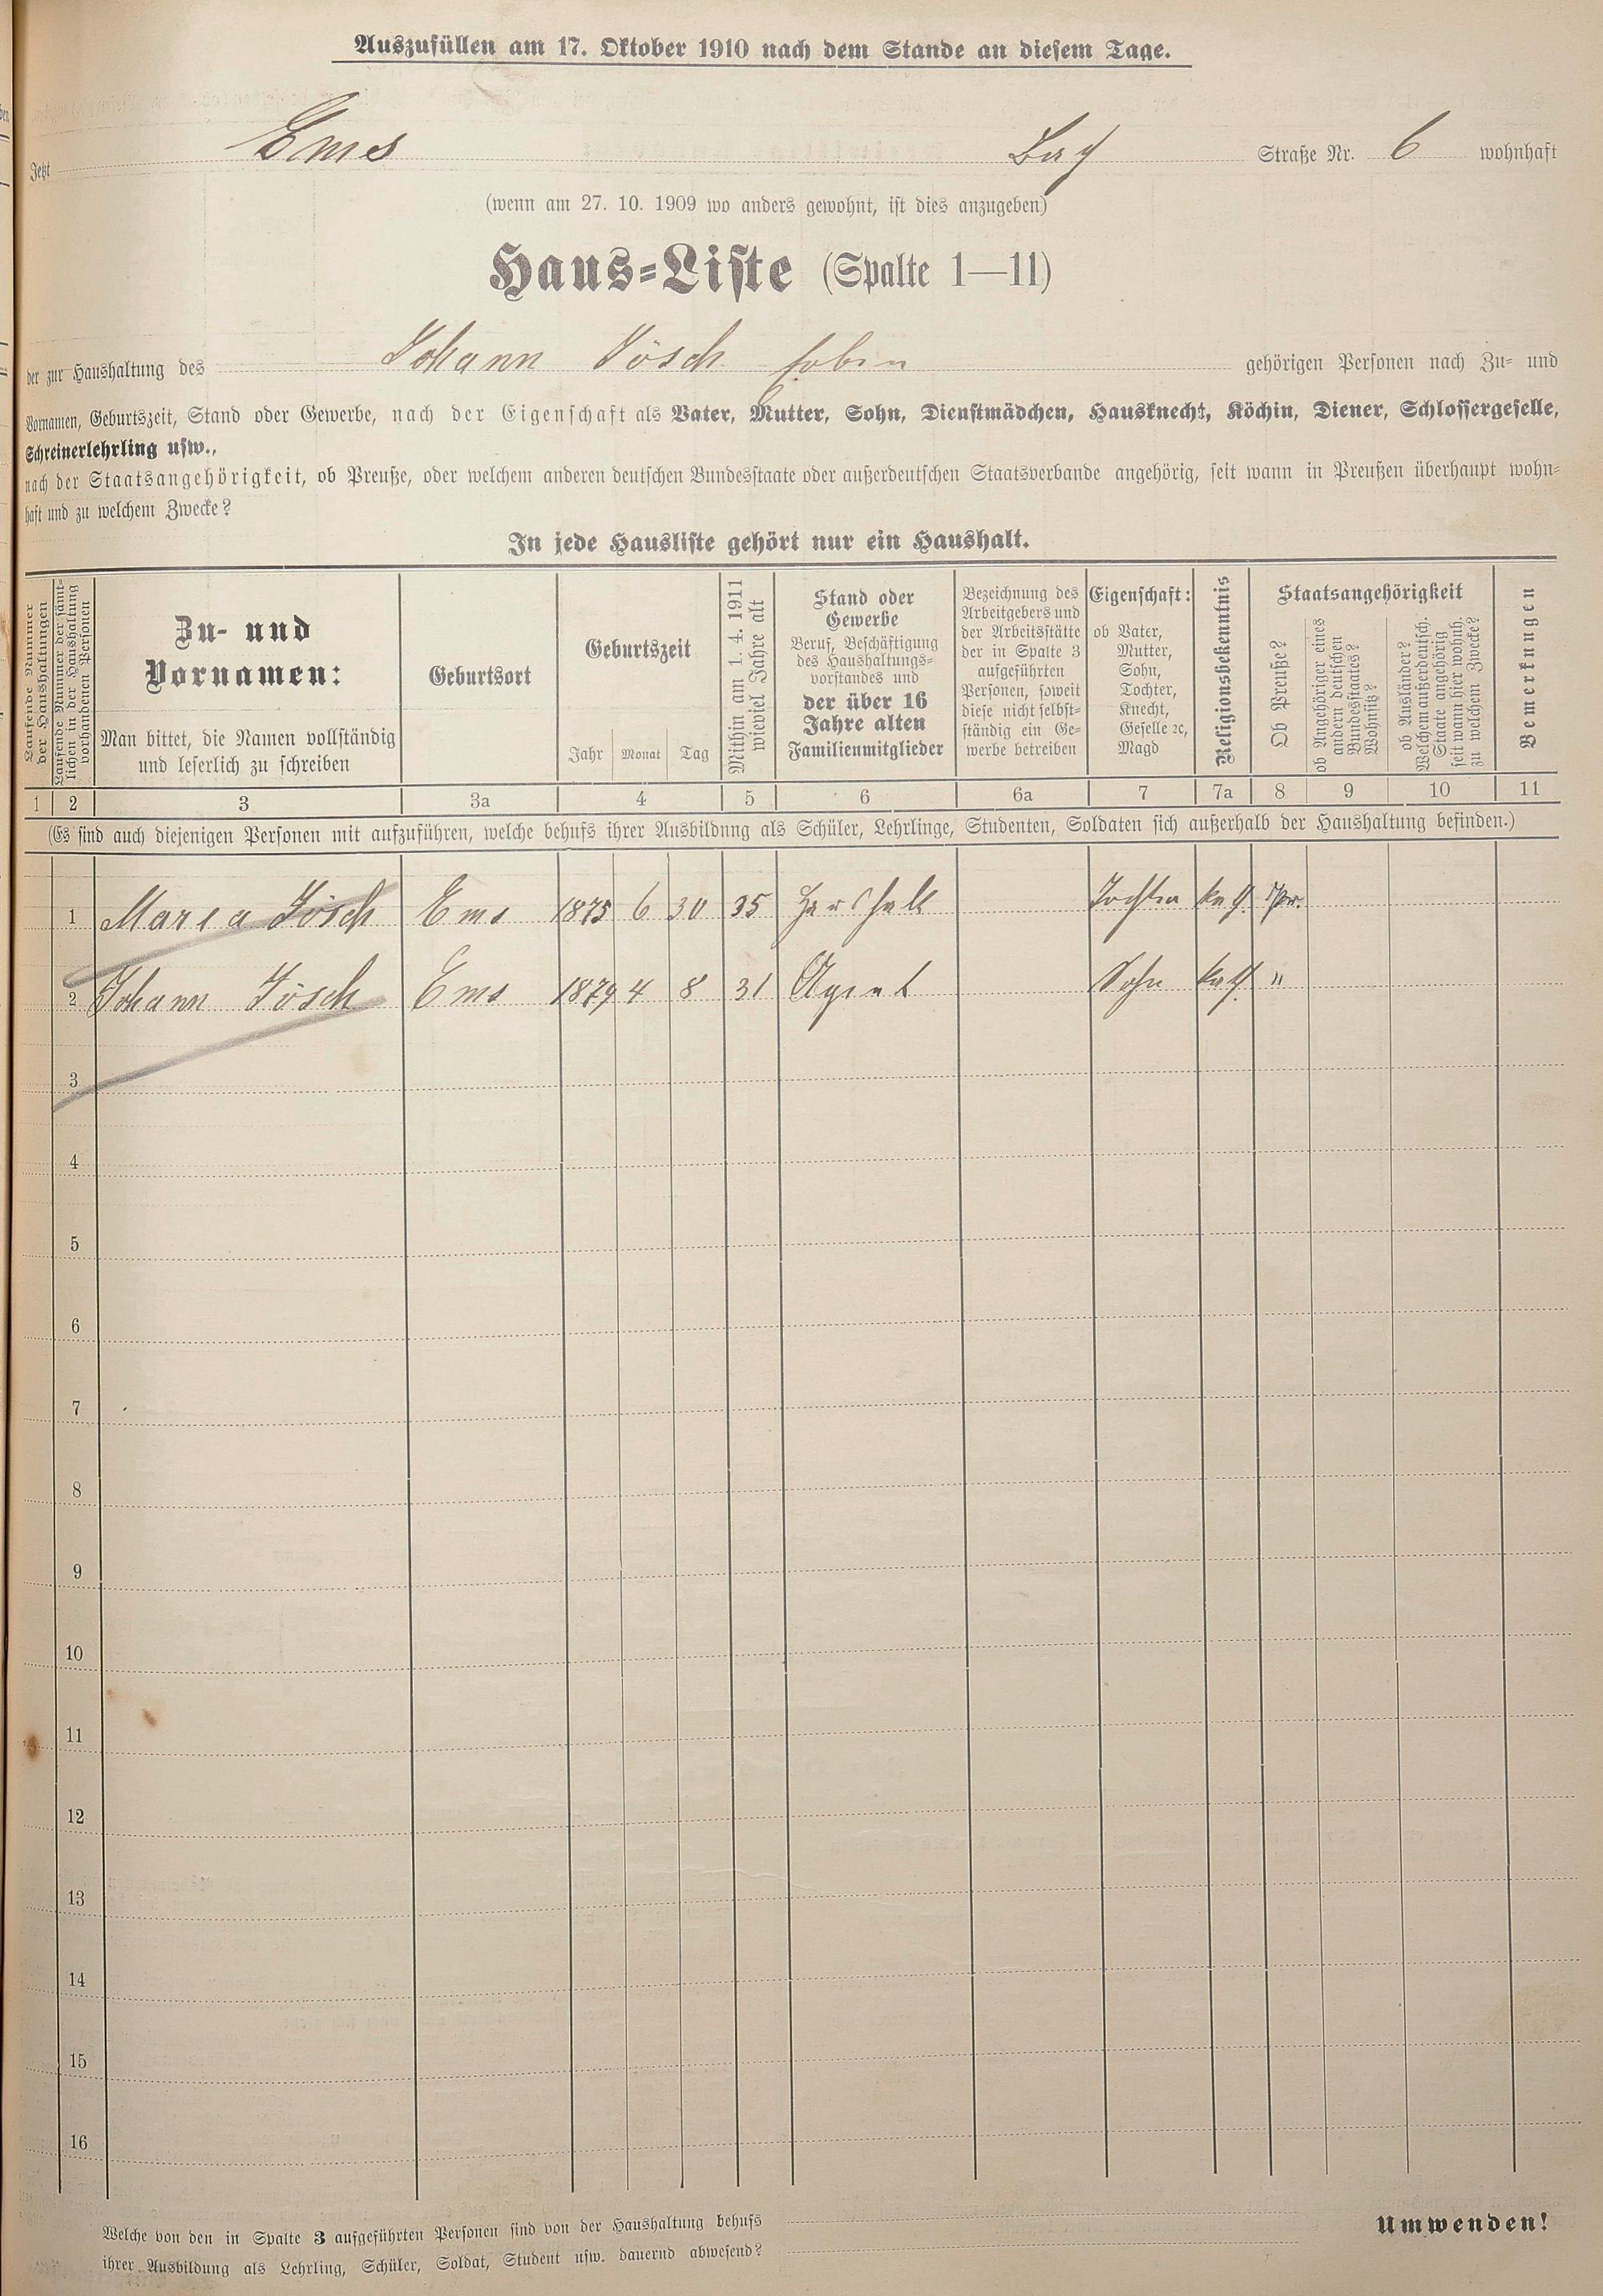 Auszufüllen am 17. Oktober 1910 nach dem Stande an diesem Tage.
Jetzt Ems Straße Nr. 6 wohnhaft
(wenn am 27. 10. 1909 wo anders gewohnt, ist dies anzugeben)
Haus-Liste (Spalte 1—11)
der zur Haushaltung des Johann Jösch Erben gehörigen Personen nach Zu- und
Vornamen, Geburtszeit, Stand oder Gewerbe, nach der Eigenschaft als Vater, Mutter, Sohn, Dienstmädchen, Hausknecht, Köchin, Diener, Schlossergeselle,
Schreinerlehrling usw.,
nach der Staatsangehörigkeit, ob Preuße, oder welchem anderen deutschen Bundesstaate oder außerdeutschen Staatsverbande angehörig, seit wann in Preußen überhaupt wohn-
haft und zu welchem Zwecke?
In jede Hausliste gehört nur ein Haushalt.
Laufende Nummer
der Haushaltungen
Laufende Nummer der sämt-
lichen in der Haushaltung
vorhandenen Personen
Zu- und
Vornamen:
Man bittet, die Namen vollständig
und leserlich zu schreiben
Geburtsort
Geburtszeit
Jahr Monat Tag
Mithin am 1. 4. 1911
wieviel Jahre alt
Stand oder
Gewerbe
Beruf, Beschäftigung
des Haushaltungs-
vorstandes und
der über 16
Jahre alten
Familienmitglieder
Bezeichnung des
Arbeitgebers und
der Arbeitsstätte
der in Spalte 3
aufgeführten
Personen, soweit
diese nicht selbst-
ständig ein Ge-
werbe betreiben
Eigenschaft:
ob Vater,
Mutter,
Sohn,
Tochter,
Knecht,
Geselle ꝛc,
Magd
Religionsbekenntnis
Staatsangehörigkeit
Ob Preuße?
ob Angehöriger eines
andern deutschen
Bundesstaates?
Wohnsitz?
ob Ausländer?
Welchem außerdeutsch.
Staate angehörig
seit wann hier wohnh.
zu welchem Zwecke?
Bemerkungen
1 2 3 3a 4 5 6 6a 7 7a 8 9 10 11
(Es sind auch diejenigen Personen mit aufzuführen, welche behufs ihrer Ausbildung als Schüler, Lehrlinge, Studenten, Soldaten sich außerhalb der Haushaltung befinden.)
1 Maria Jösch Ems 1875 6 30 35 Haushalt Tochter kath. Pr.
2 Johann Jösch Ems 1879 4 8 31 Agent Sohn kath. "
3
4
5
6
7
8
9
10
11
12
13
14
15
16
Welche von den in Spalte 3 aufgeführten Personen sind von der Haushaltung behufs
ihrer Ausbildung als Lehrling, Schüler, Soldat, Student usw. dauernd abwesend?
Umwenden!